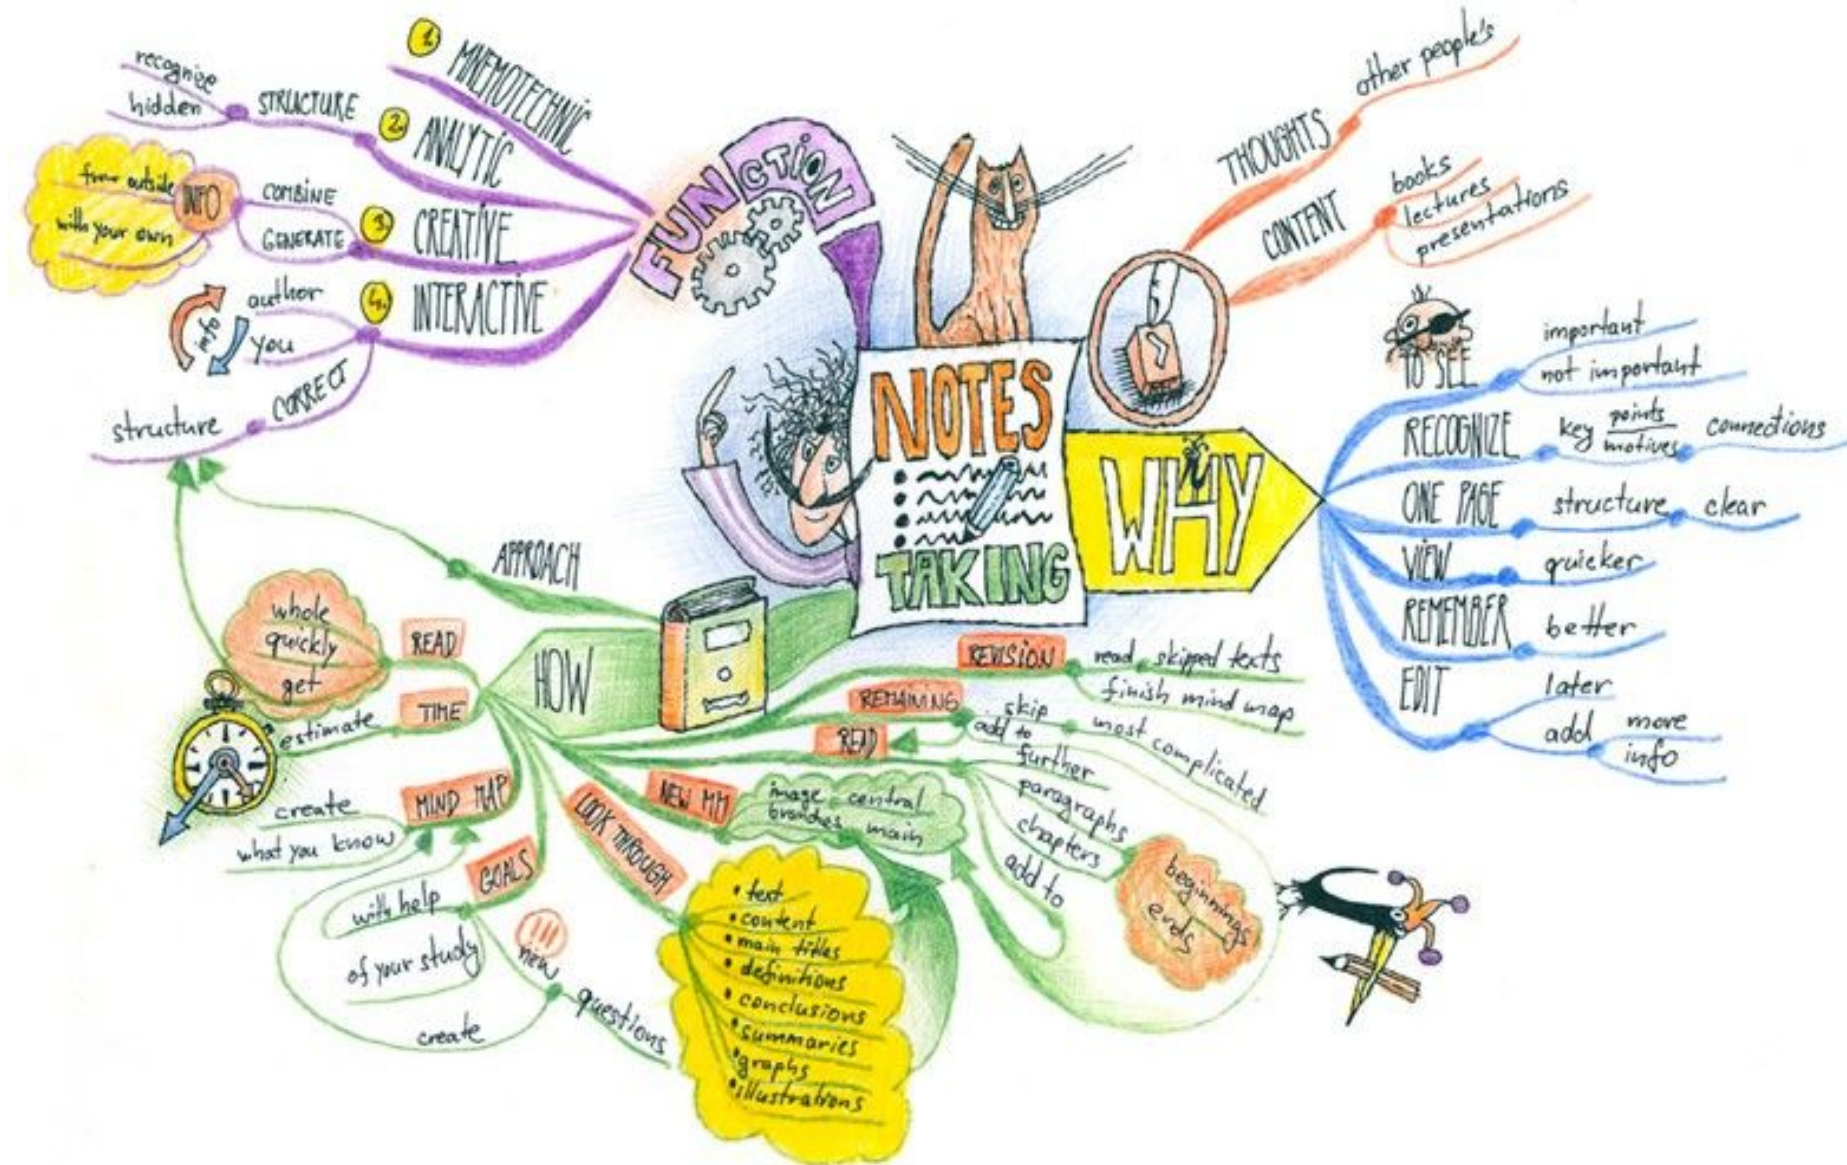 NOTES
TAKING
FUNCTION
1. MNEMOTECHNIC
2. ANALYTIC
STRUCTURE
recognize
hidden
3. CREATIVE
COMBINE
GENERATE
INFO
from outside
with your own
4. INTERACTIVE
author
you
CORRECT
structure
THOUGHTS
other people's
CONTENT
books
lectures
presentations
WHY
TO SEE
important
not important
RECOGNIZE
key points
motives
connections
ONE PAGE
structure
clear
VIEW
quicker
REMEMBER
better
EDIT
later
add
more
info
HOW
APPROACH
READ
whole
quickly
get
TIME
estimate
MIND MAP
create
what you know
GOALS
with help
of your study
new
questions
create
LOOK THROUGH
• text
• content
• main titles
• definitions
• conclusions
• summaries
• graphs
• illustrations
NEW MM
image central
branches main
READ
further
paragraphs
chapters
beginnings
ends
add to
REMAINING
skip
most complicated
add to
REVISION
read skipped texts
finish mind map